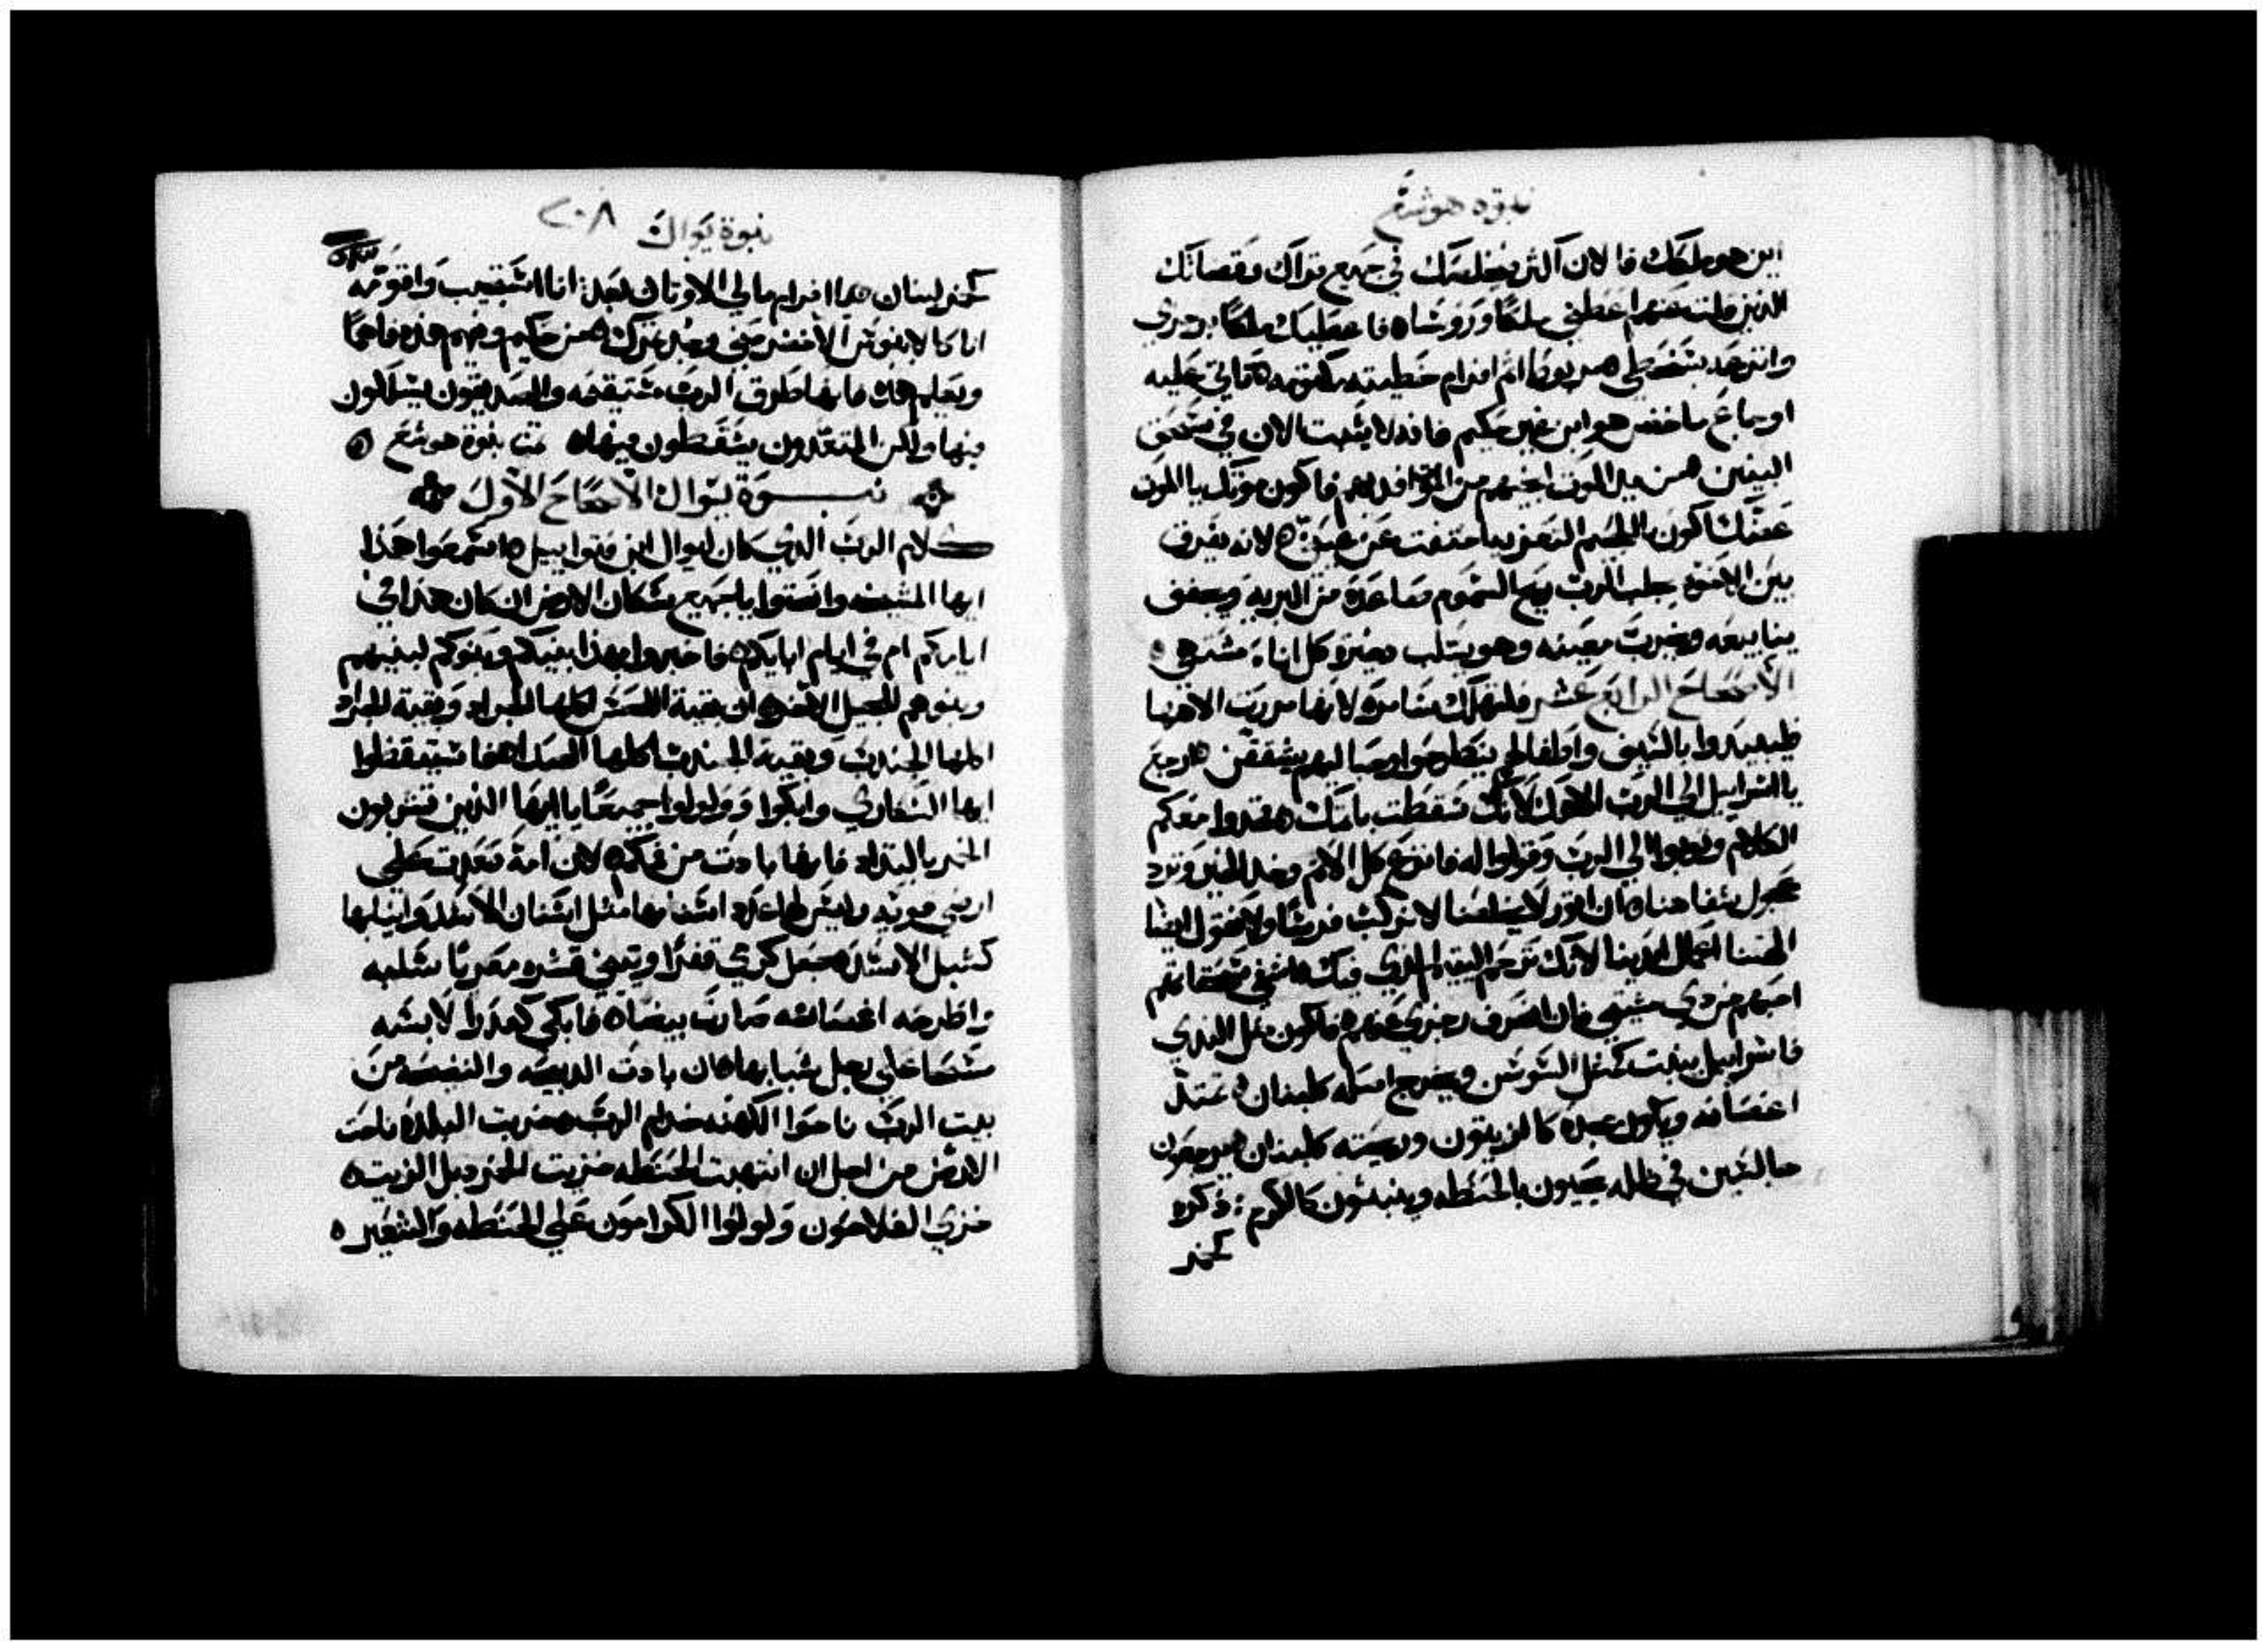 نبوة هوشع
اين هو ملكك فالان اكثر يخلصك في جميع قراك وقضاتك
الذين قلت عنهم اعطني ملكًا وروشاه فاعطيك ملكًا برجزي
وانتزعه بسخطي ربوط اثم افرام خطيته مكتومه تاتي عليه
اوجاع ماخض هو ابن غير حكيم فانه لا يثبت الان في سحق
البنين من يد الموت انجيهم من الموت افديهم فاكون موتك يا الموت
عضتك اكون يا الجحيم التعزيه اختفت عن عيني لانه يفرق
بين الاخوة يجلب الرب ريح السموم صاعدة من البرية ويجفف
ينابيعه ويخرب معينه وهو يسلب دخيرة كل اناء مشتهي
الاصحاح الرابع عشر فلتهلك سامره لانها مررت الاهها
فليبيدوا بالسيف واطفالهم ينطرحوا وحباليهم يشققن ارجع
يا اسرائيل الي الرب الاهك لانك سقطت باثمك خدوا معكم
الكلام وتوبوا الي الرب وقولوا له فانزع كل الاثم وخد الخير ونرد
عجول شفاهنا ان اتور لا يخلصنا لا نركب فرسًا ولا نقول ايضا
الهتنا اعمال ايدينا لانك ترحم اليتيم الذي فيك اشفي سحقاتهم
احبهم من دي مشيتي فان انصرف رجزي عنهم فاكون مثل الندي
فاسرائيل ينبت كمثل السوسن ويخرج اصله كلبنان تمتد
اغصانه ويكون مجده كالزيتون ورائحته كلبنان يرجعون
جالسين في ظله يحيون بالحنطه وينبتون كالكرم ذكره
كخمر
نبوة يوال ٢٠٨
كخمر لبنان يا افرام مالي الاوتان بعد انا استجيب واقومه
انا كالابنوس الاخضر مني وجد ثمرك من حكيم وفهم هذه فاهمًا
ويعلم هاك فانها طرق الرب مستقيمه والصديقون يسلكون
فيها ولكن المتعدون يسقطون فيها تمت نبوة هوشع
نبوة يوال الاصحاح الاول
كلام الرب الذي كان ليوال ابن فتواييل اسمعوا هذا
ايها المشيخه وانصتوا يا جميع سكان الارض ان كان هذا في
ايامكم ام في ايام ابايكم فاخبروا بهذا بنيكم وبنوكم لبنيهم
وبنوهم للجيل الاخر ان بقية القمص اكلها الجراد وبقية الجراد
اكلها الجندب وبقية الجندب اكلها الصدا فاستيقظوا
ايها السكاري وابكوا وولولوا جميعًا يا ايها الذين تشربون
الخمر بالتداد فانها بادت من فمكم لان امة صعدت علي
ارضي قويه وليس لها عدد اسنانها مثل اسنان الاسد وانيابها
كشبل الاسد جعل كرمي قفرًا وتيني قشره معريًا سلبه
واطرحه اغصانه صارت بيضاء فابكي كعذرا لابسه
مسحا علي بعل شبابها بادت الدبيحه والنضحه من
بيت الرب ناحوا الكهنه خدام الرب خربت البلده ناحت
الارض من اجل ان انتهبت الحنطه خزيت الخمر دبل الزيت
خزي الفلاحون ولولوا الكرامون علي الحنطه والشعير